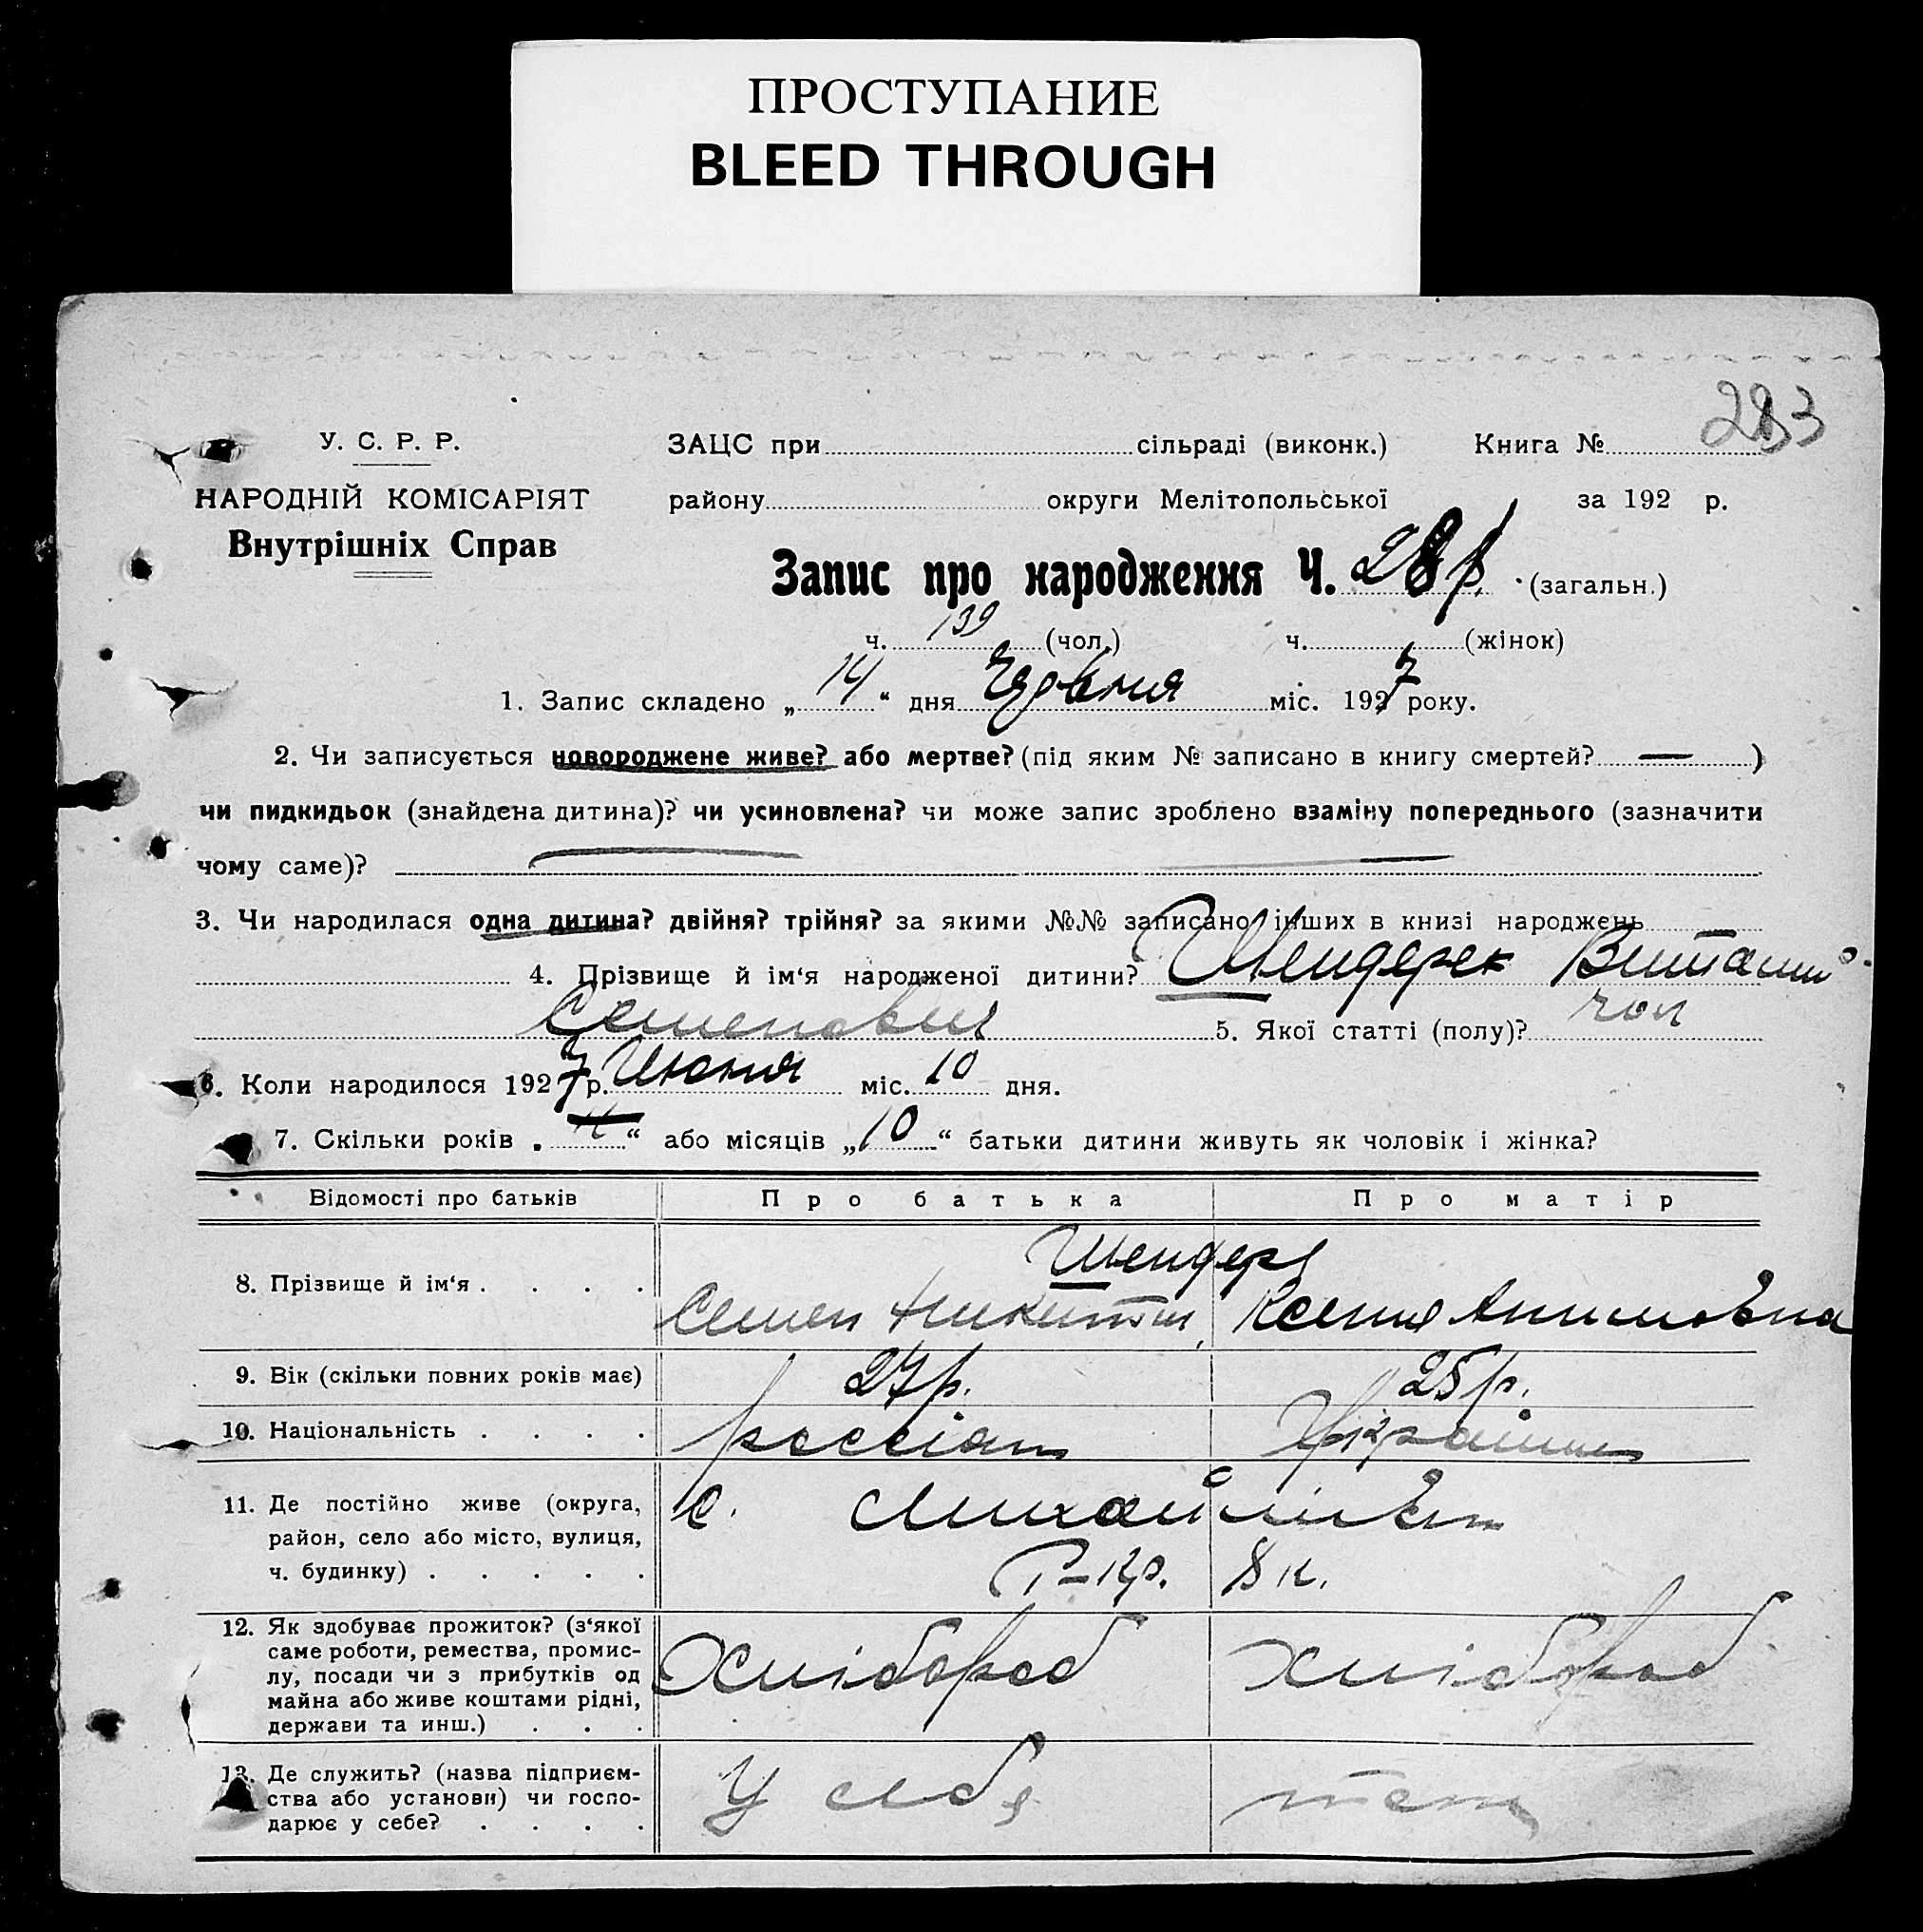 ПРОСТУПАНИЕ
BLEED THROUGH
283
У. С. Р. Р.
ЗАЦС при сільраді (виконк.) Книга №
НАРОДНІЙ КОМІСАРІЯТ
району округи Мелітопольської за 192 р.
Внутрішніх Справ
Запис про народження Ч. (загальн.)
ч. 139 (чол.) ч. (жінок)
1. Запис складено „ 14 “ дня Червня міс. 1927 року.
2. Чи записується новороджене живе? або мертве? (під яким № записано в книгу смертей? — )
чи пидкидьок (знайдена дитина)? чи усиновлена? чи може запис зроблено взаміну попереднього (зазначити
чому саме)?
3. Чи народилася одна дитина? двійня? трійня? за якими №№ записано інших в книзі народжень —
4. Прізвище й ім‘я народженої дитини? Шендерек
Семенович 5. Якої статті (полу)? чол
6. Коли народилося 1927 р. Июня міс. 10 дня.
7. Скільки років „ “ або місяців „ 10 “ батьки дитини живуть як чоловік і жінка?
Відомості про батьків Про батька Про матір
Шендере
8. Прізвище й ім‘я . . . . Семен Никитич Ксения Акимовна
9. Вік (скільки повних років має) 27 р. 25 р.
10. Національність . . . . россіян Україн
11. Де постійно живе (округа, с. Михайлівка
район, село або місто, вулиця,
ч. будинку) . . . . . Р-кр. 8 к.
12. Як здобуває прожиток? (з‘якої
саме роботи, ремества, промис-
лу, посади чи з прибутків од Хлібороб хлібороб
майна або живе коштами рідні,
держави та инш.) . . .
13. Де служить? (назва підприєм-
ства або установи) чи госпо- У себя там
дарює у себе? . . . .